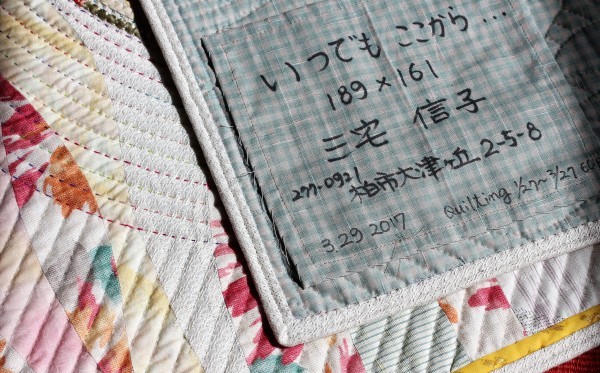 いつでも ここから…
189×161
三宅 信子
277-0921
柏市大津ヶ丘 2-5-8
3.29 2017
Quilting 1/27~3/27 60